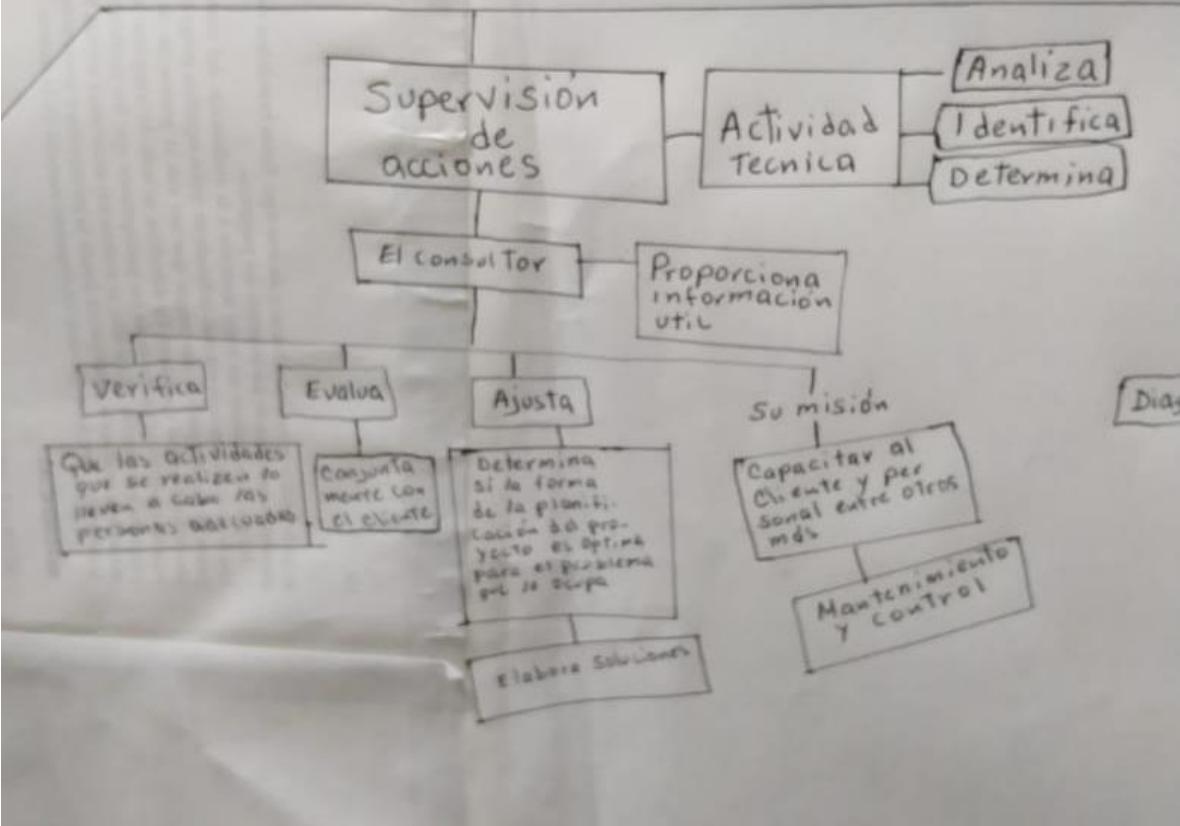 Supervisión
de
acciones
Actividad
Tecnica
Analiza
Identifica
Determina
El consultor
Proporciona
información
util
Verifica
Evalua
Ajusta
Su misión
Diag
Que las actividades
que se realizen lo
lleven a cabo las
personas adecuadas
Conjunta
mente con
el cliente
Determina
si la forma
de la planifi-
cación del pro-
yecto es optima
para el problema
que se ocupa
Capacitar al
Cliente y per
sonal entre otros
más
Elabora Soluciones
Mantenimiento
y control